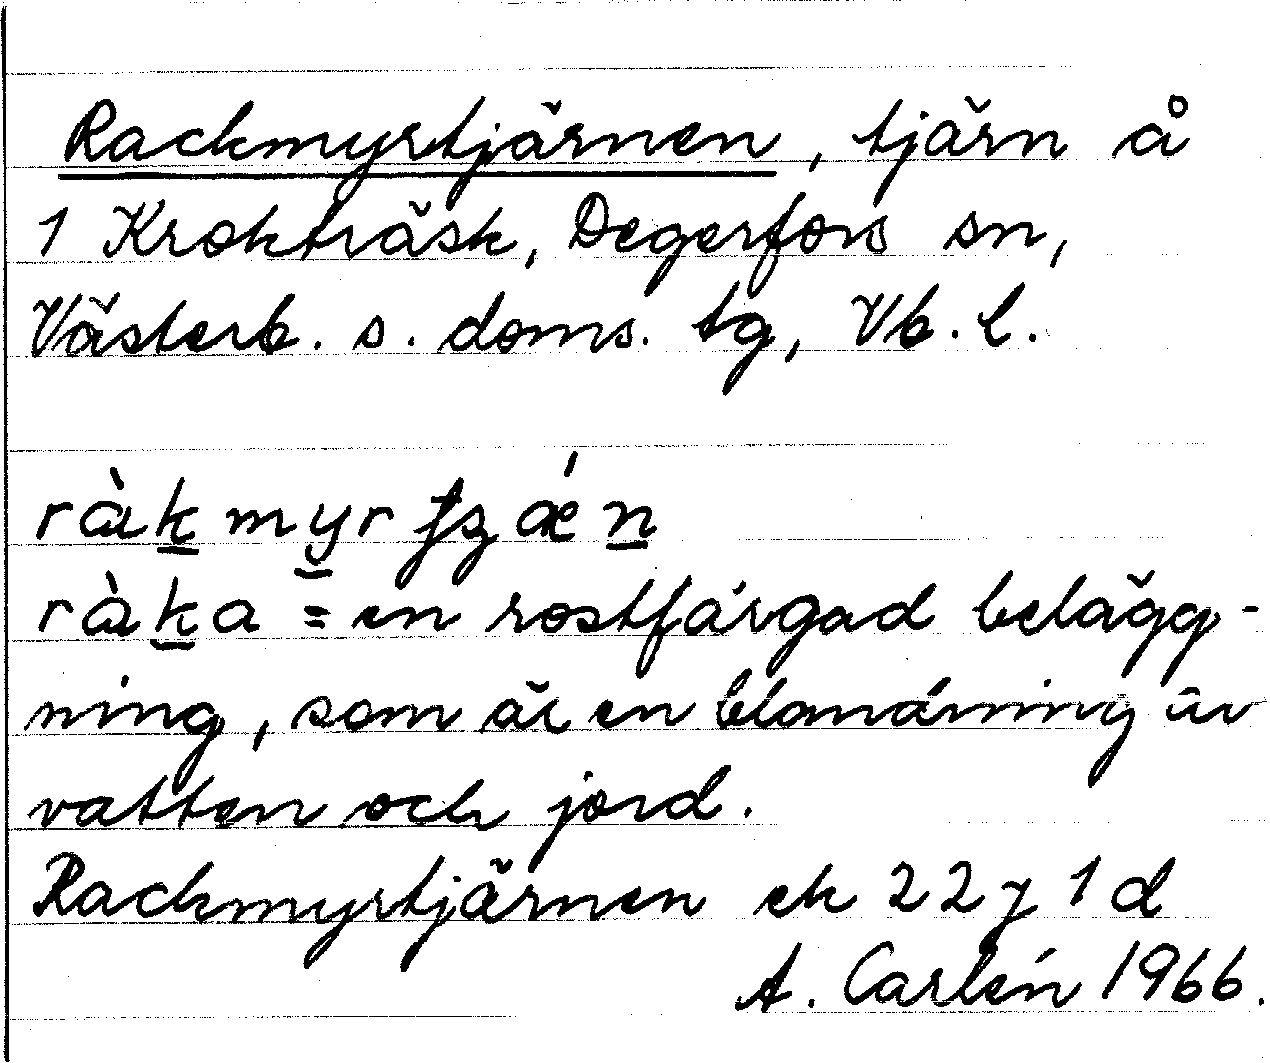 Rackmyrtjärnen, tjärn å
1 Krokträsk, Degerfors sn,
Västerb. s. doms. tg, Vb. l.
ràkmyr
ràka = en rostfärgad belägg-
ning, som är en blandning av
vatten och jord.
Rackmyrtjärnen ek 22 J 1 d
A. Carlén 1966.